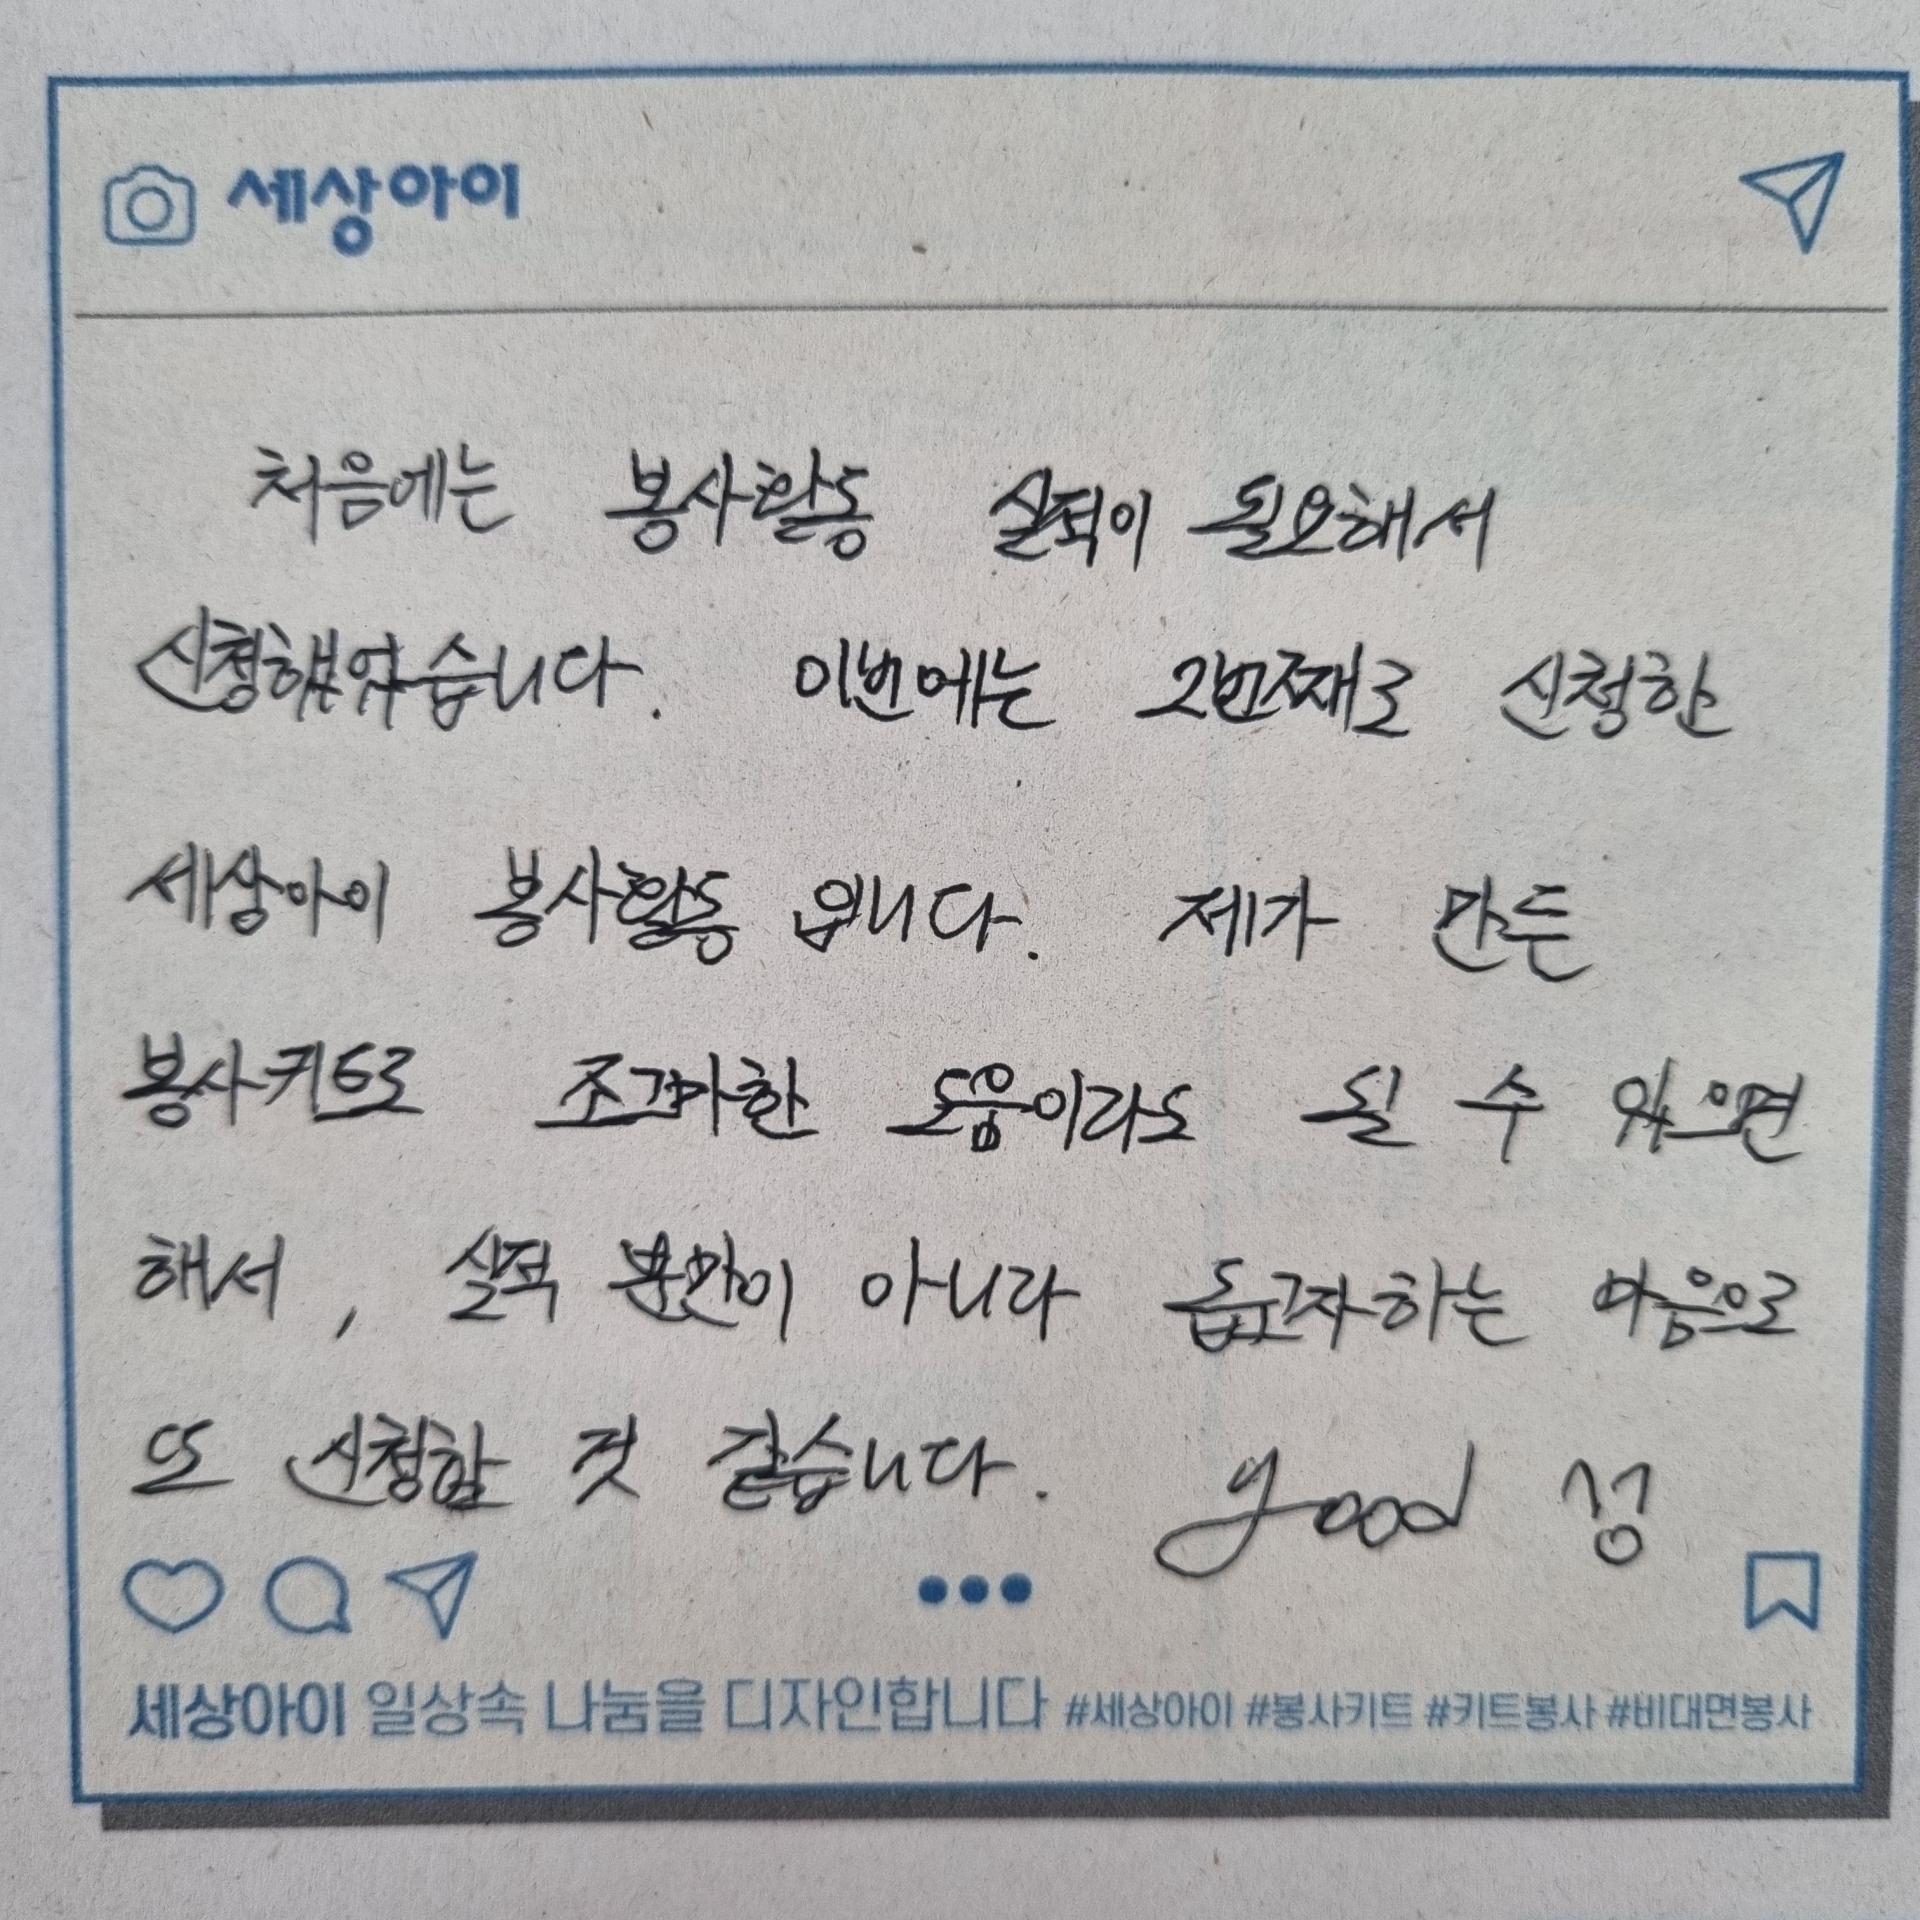 세상아이
처음에는 봉사활동 실적이 필요해서
신청했었습니다. 이번에는 2번째로 신청한
세상아이 봉사활동 입니다. 제가 만든
봉사키트로 조그마한 도움이라도 될 수 있으면
해서, 실적 뿐만이 아니라 돕고자하는 마음으로
또 신청한 것 같습니다. good 성
세상아이 일상속 나눔을 디자인합니다 #세상아이 #봉사키트 #키트봉사 #비대면봉사